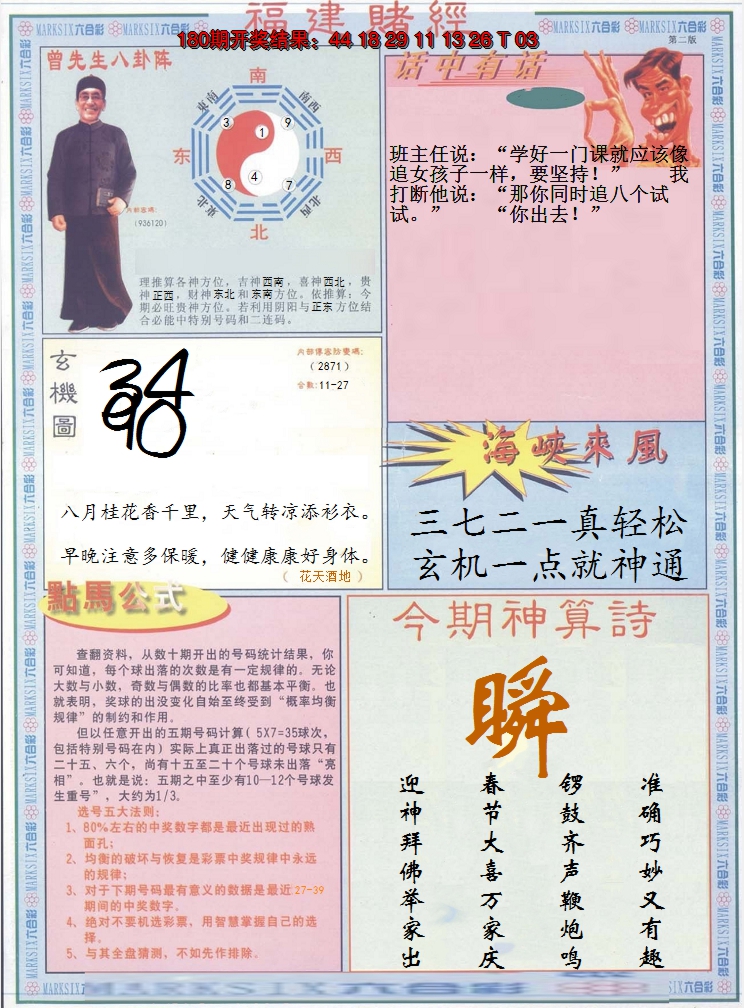 福建賭經
180期开奖结果：44 18 29 11 13 26 T 03
MARKSIX六合彩
第二版
曾先生八卦阵
南
东南
西南
东
西
东北
西北
北
3
1
9
8
4
7
（936120）
理推算各神方位，吉神西南，喜神西北，贵
神正西，财神东北和东南方位。依推算：今
期必旺贵神方位。若利用阴阳与正东方位结
合必能中特别号码和二连码。
话中有话
班主任说：“学好一门课就应该像
追女孩子一样，要坚持！” 我
打断他说：“那你同时追八个试
试。” “你出去！”
玄機圖
（2871）
合数:11-27
八月桂花香千里，天气转凉添衫衣。
早晚注意多保暖，健健康康好身体。
（ 花天酒地 ）
海峽來風
三七二一真轻松
玄机一点就神通
點馬公式
查翻资料，从数十期开出的号码统计结果，你
可知道，每个球出落的次数是有一定规律的。无论
大数与小数，奇数与偶数的比率也都基本平衡。也
就表明，奖球的出没变化自始至终受到“概率均衡
规律”的制约和作用。
但以任意开出的五期号码计算( 5X7=35球次，
包括特别号码在内）实际上真正出落过的号球只有
二十五、六个，尚有十五至二十个号球未出落“亮
相”。也就是说：五期之中至少有10—12个号球发
生重号”，大约为1/3。
选号五大法则：
1、80%左右的中奖数字都是最近出现过的熟
面孔；
2、均衡的破坏与恢复是彩票中奖规律中永远
的规律；
3、对于下期号码最有意义的数据是最近27-39
期间的中奖数字。
4、绝对不要机选彩票，用智慧掌握自己的选
择。
5、与其全盘猜测，不如先作排除。
今期神算詩
瞬
准确巧妙又有趣
锣鼓齐声鞭炮鸣
春节大喜万家庆
迎神拜佛举家出